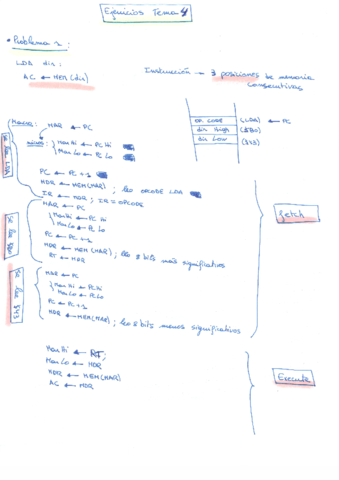 Ejercicios Tema 4
• Problema 1:
LDA dir:
AC ← MEM(dir)
Instrucción → 3 posiciones de memoria
consecutivas
OP CODE (LDA) ← PC
dir High ($B0)
dir Low ($43)
MAR ← PC
MarHi ← PC Hi
MarLo ← PC Lo
PC ← PC + 1
MDR ← MEM(MAR) ; leo OPCODE LDA
IR ← MDR ; IR = OPCODE
MAR ← PC
MarHi ← PC Hi
MarLo ← PC Lo
PC ← PC + 1
MDR ← MEM (MAR) ; leo 8 bits más significativos
RT ← MDR
MAR ← PC
MarHi ← PCHi
MarLo ← PCLo
PC ← PC + 1
MDR ← MEM(MAR) ; leo 8 bits menos significativos
fetch
MarHi ← RT;
MarLo ← MDR
MDR ← MEM(MAR)
AC ← MDR
Execute